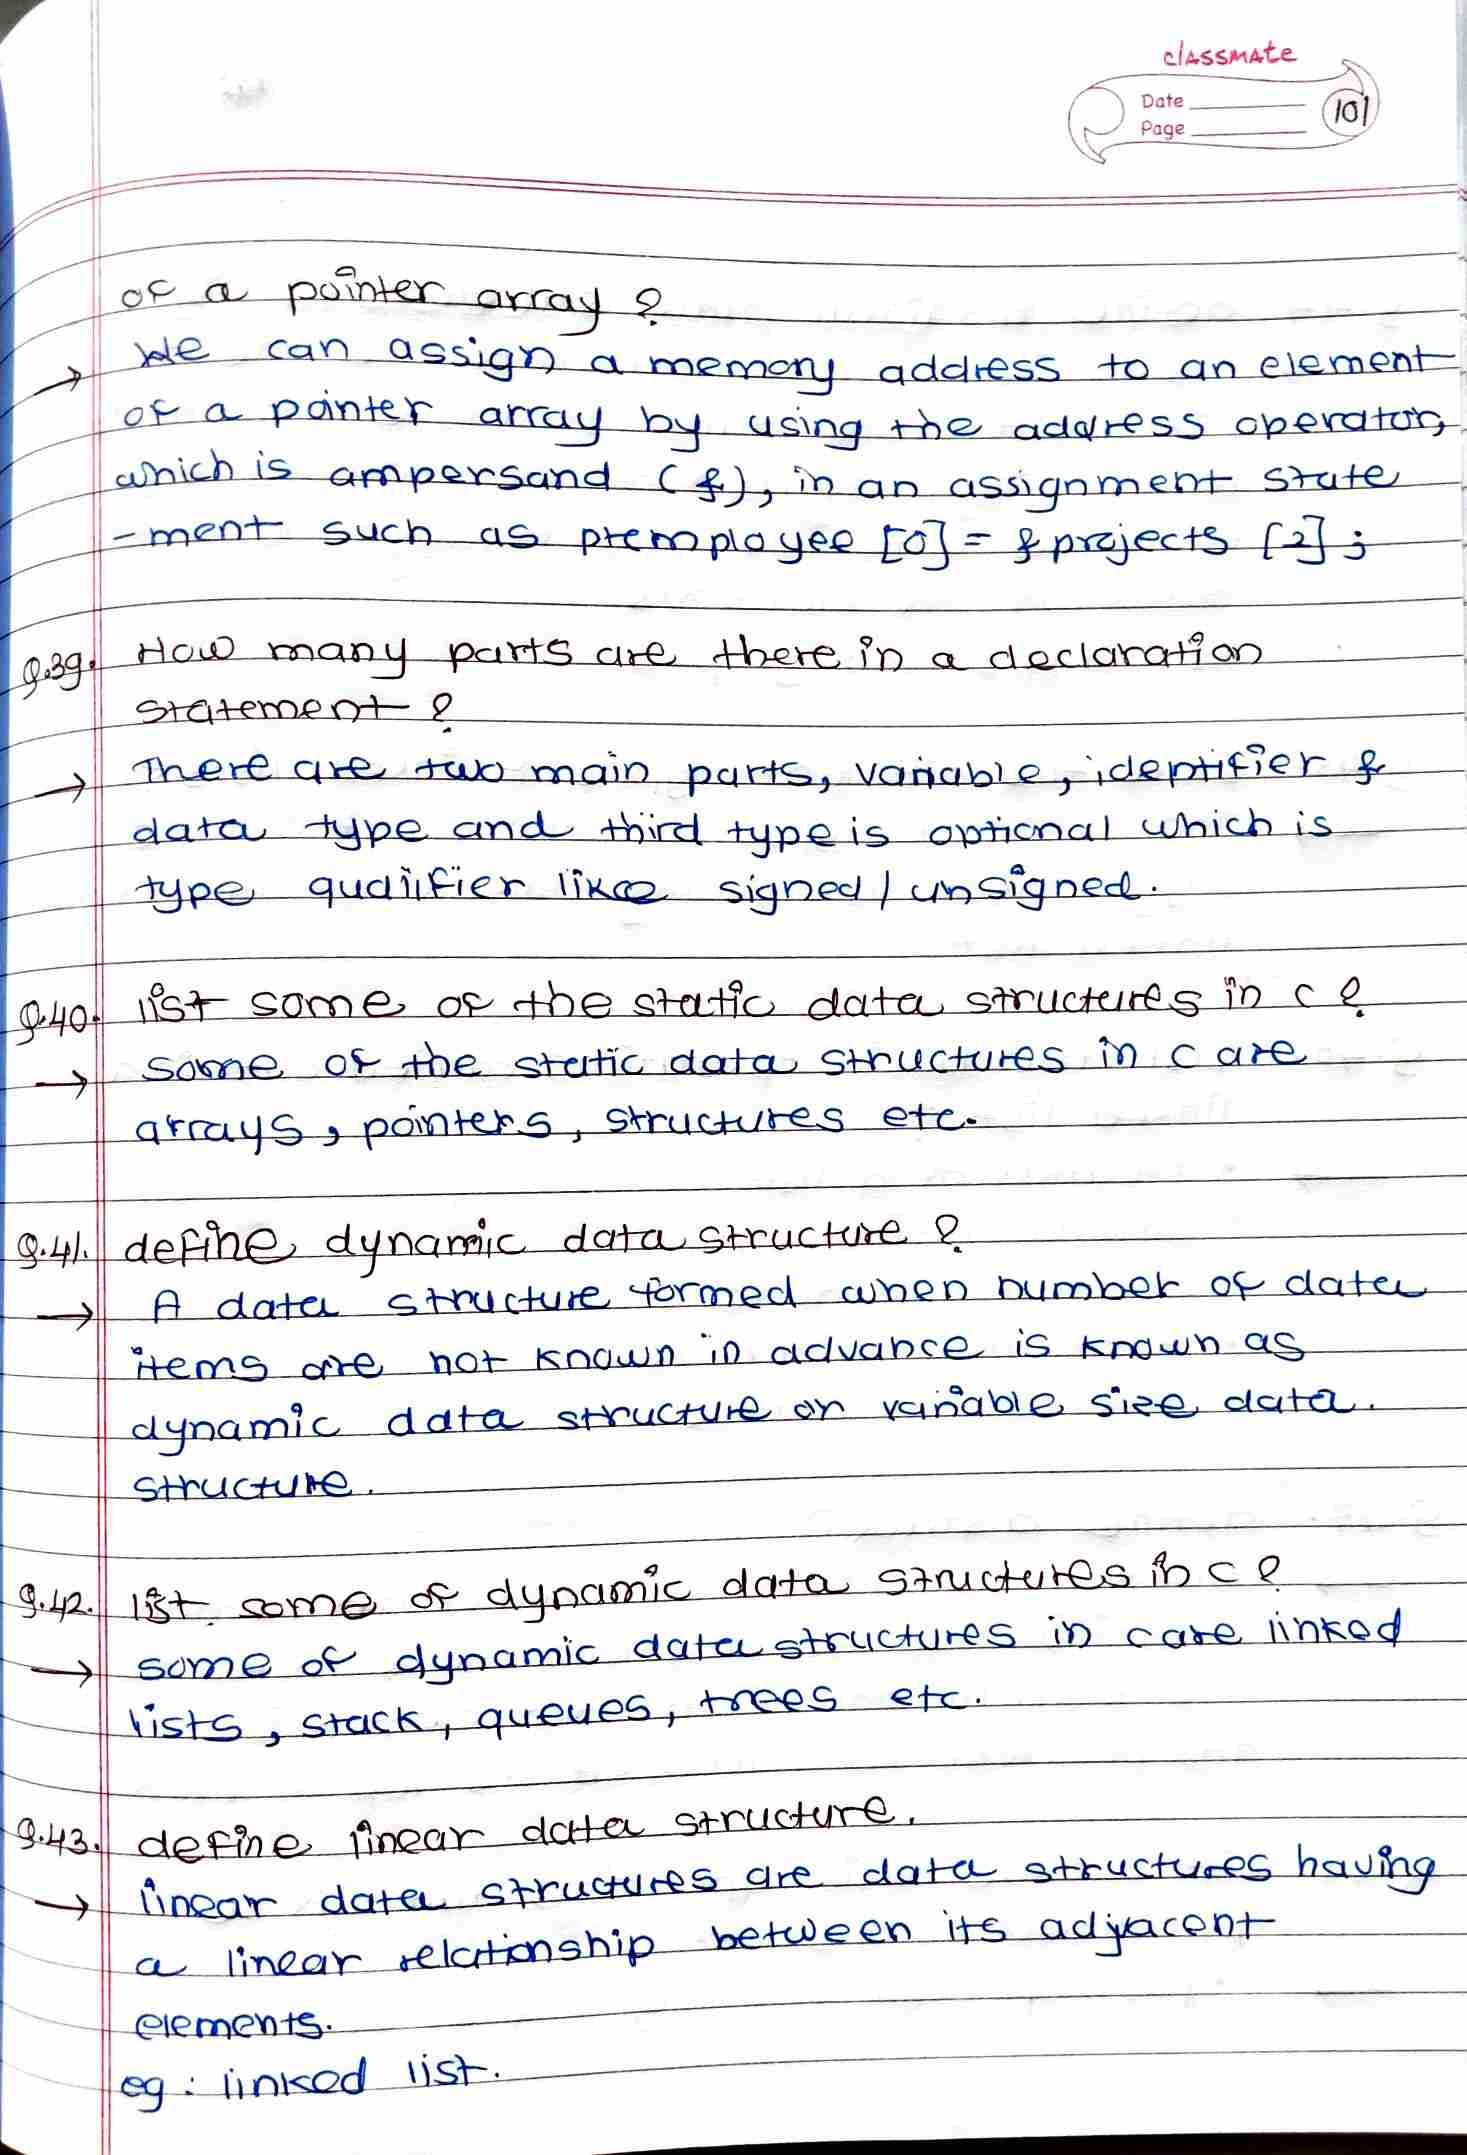 classmate
Date
Page
101
of a pointer array ?
→ We can assign a memory address to an element
of a pointer array by using the address operator,
which is ampersand (&), in an assignment state
-ment such as ptemployee [0] = & projects [2] ;
Q.39. How many parts are there in a declaration
statement ?
→ There are two main parts, variable, identifier &
data type and third type is optional which is
type qualifier like signed / unsigned.
Q.40. list some of the static data structures in C ?
→ some of the static data structures in C are
arrays, pointers, structures etc.
Q.41. define dynamic data structure ?
→ A data structure formed when number of data
items are not known in advance is known as
dynamic data structure or variable size data.
structure.
Q.42. list some of dynamic data structures in C ?
→ some of dynamic data structures in C are linked
lists, stack, queues, trees etc.
Q.43. define linear data structure.
→ linear data structures are data structures having
a linear relationship between its adjacent
elements.
eg : linked list.